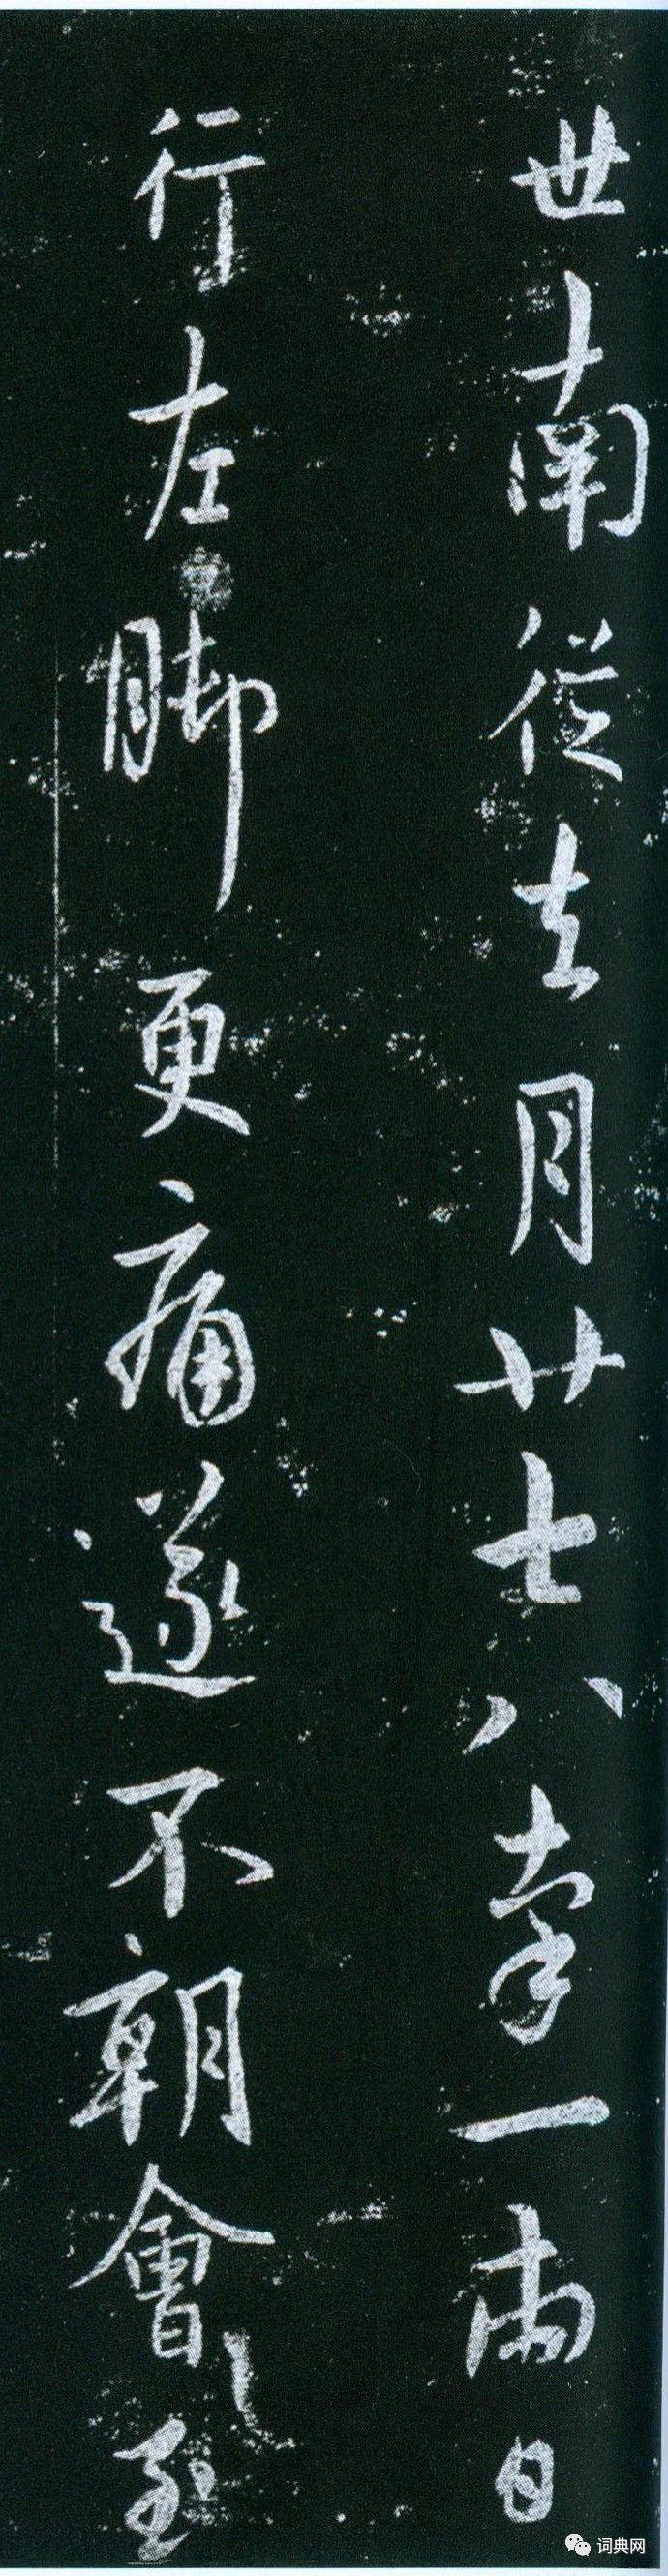 世南從去月廿七八率一兩日
行左脚更痛遂不朝會至
词典网